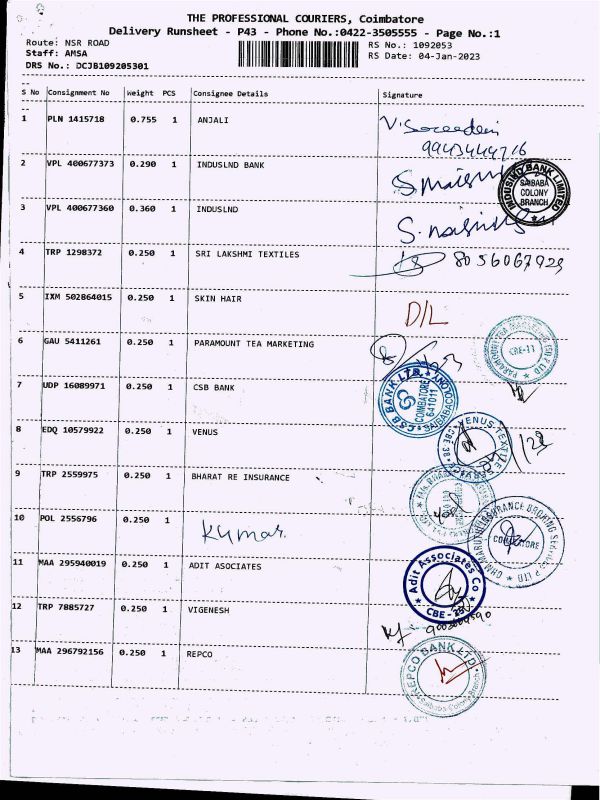 THE PROFESSIONAL COURIERS, Coimbatore
Delivery Runsheet - P43 - Phone No.:0422-3505555 - Page No.:1
Route: NSR ROAD
RS No.: 1092053
Staff: AMSA
RS Date: 04-Jan-2023
DRS No.: DCJB109205301
S No Consignment No Weight PCS Consignee Details Signature
1 PLN 1415718 0.755 1 ANJALI
2 VPL 400677373 0.290 1 INDUSLND BANK
INDUSIND BANK LIMITED
SAIBABA
COLONY
BRANCH
3 VPL 400677360 0.360 1 INDUSLND
4 TRP 1298372 0.250 1 SRI LAKSHMI TEXTILES
8056067929
5 IXM 502864015 0.250 1 SKIN HAIR
D/L
6 GAU 5411261 0.250 1 PARAMOUNT TEA MARKETING
CBE-11
7 UDP 16089971 0.250 1 CSB BANK
CSB BANK LTD.
COIMBATORE
641011
8 EDQ 10579922 0.250 1 VENUS
VENUS TEXTILE SERVICE
9 TRP 2559975 0.250 1 BHARAT RE INSURANCE
10 POL 2556796 0.250 1
Kumar
COIMBATORE
11 MAA 295940019 0.250 1 ADIT ASOCIATES
Adit Associates Co
CBE
12 TRP 7885727 0.250 1 VIGENESH
13 MAA 296792156 0.250 1 REPCO
REPCO BANK LTD
Saibaba Colony Branch